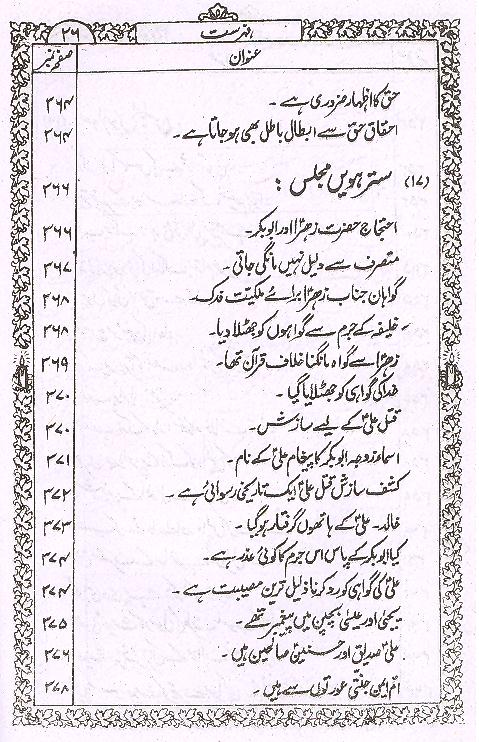 ۲۶ فہرست
صفحہ نمبر عنوان
حق کا اظہار ضروری ہے۔ ۳۶۴
احقاق حق سے ابطال باطل بھی ہو جاتا ہے۔ ۳۶۴
(۱۷) سترھویں مجلس : ۳۶۶
احتجاج حضرت زہراؑ اور ابوبکر۔ ۳۶۶
متصرف سے دلیل نہیں مانگی جاتی۔ ۳۶۷
گواہان جناب زہراؑ برائے ملکیت فدک۔ ۳۶۸
خلیفہ کے جرم سے گواہوں کو جھٹلا دیا۔ ۳۶۸
زہراؑ سے گواہ مانگنا خلاف قرآن تھا۔ ۳۶۹
خدا کی گواہی کو جھٹلایا گیا۔ ۳۷۰
قتل علیؑ کے لیے سازش۔ ۳۷۰
اسماء زوجہ ابوبکر کا پیغام علیؑ کے نام۔ ۳۷۱
کشف سازش قتل علیؑ ایک تاریخی رسوائی ہے۔ ۳۷۲
خالد۔ علیؑ کے ہاتھوں گرفتار ہو گیا۔ ۳۷۳
کیا ابوبکر کے پاس اس جرم کا کوئی عذر ہے۔ ۳۷۴
علیؑ کی گواہی کو رد کرنا ذلیل ترین مصیبت ہے۔ ۳۷۴
یحییٰ اور عیسیٰ بچپن میں پیغمبر تھے۔ ۳۷۵
علیؑ صدیق اور حسنینؑ صالحین ہیں۔ ۳۷۶
ام ایمن جنتی عورتوں سے ہیں۔ ۳۷۸